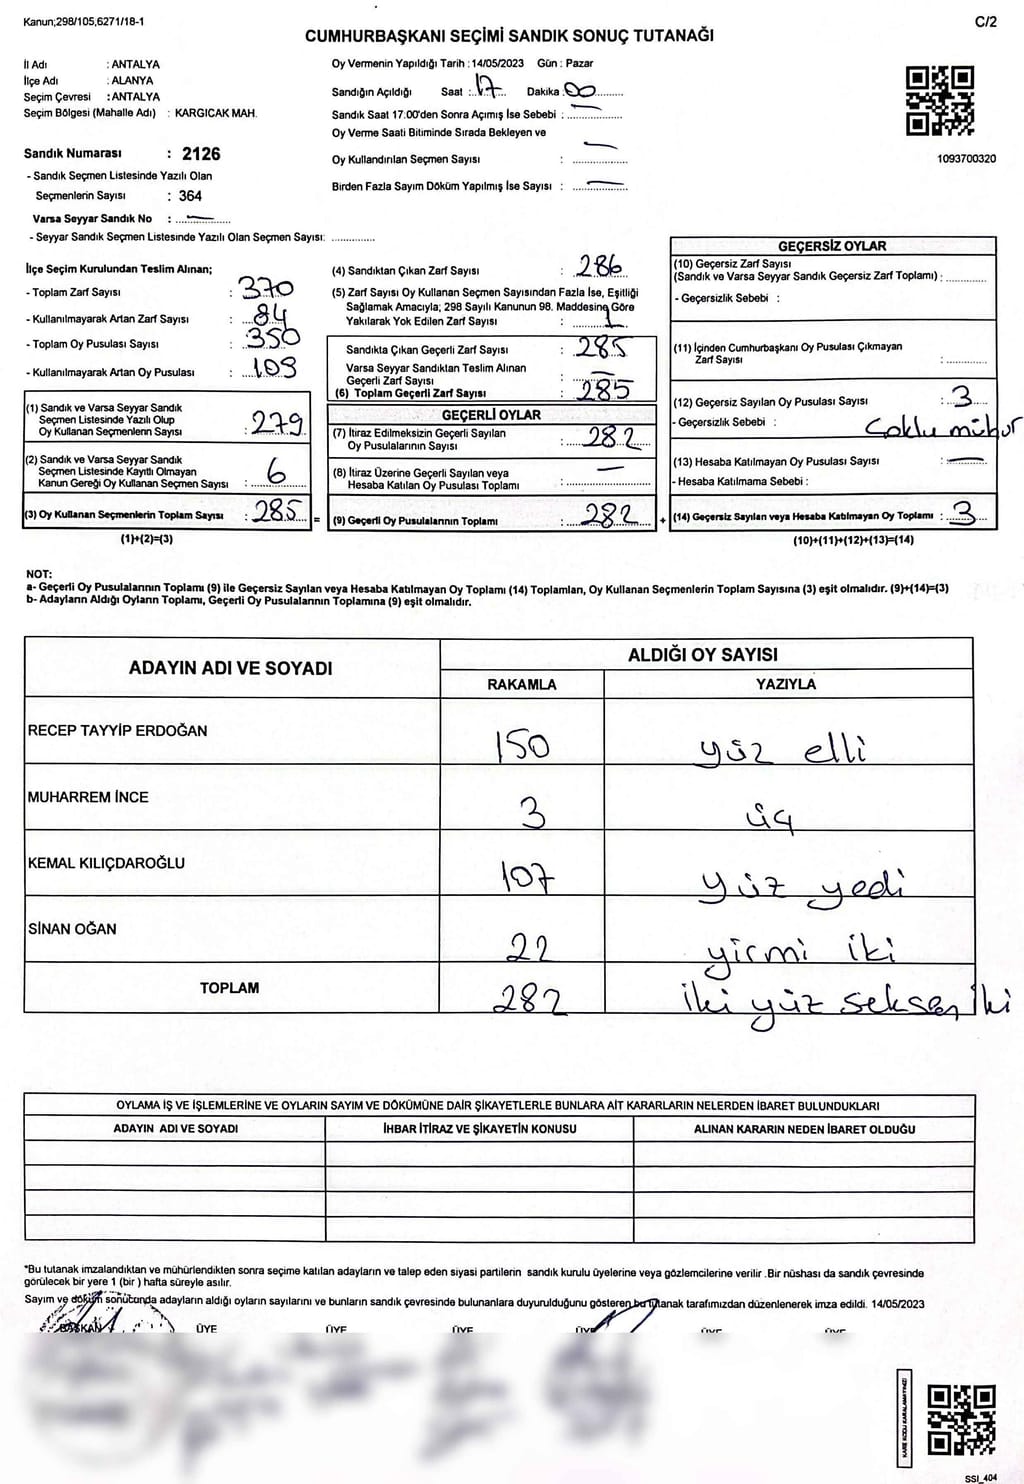 Kanun;298/105,6271/18-1
C/2
CUMHURBAŞKANI SEÇİMİ SANDIK SONUÇ TUTANAĞI
İl Adı : ANTALYA
İlçe Adı : ALANYA
Seçim Çevresi : ANTALYA
Seçim Bölgesi (Mahalle Adı) : KARGICAK MAH.
Sandık Numarası : 2126
- Sandık Seçmen Listesinde Yazılı Olan
Seçmenlerin Sayısı : 364
Varsa Seyyar Sandık No : —
- Seyyar Sandık Seçmen Listesinde Yazılı Olan Seçmen Sayısı: ..............
Oy Vermenin Yapıldığı Tarih : 14/05/2023 Gün : Pazar
Sandığın Açıldığı Saat : 17 Dakika : 00
Sandık Saat 17.00'den Sonra Açımış İse Sebebi : —
Oy Verme Saati Bitiminde Sırada Bekleyen ve
Oy Kullandırılan Seçmen Sayısı : —
Birden Fazla Sayım Döküm Yapılmış İse Sayısı : —
1093700320
İlçe Seçim Kurulundan Teslim Alınan;
- Toplam Zarf Sayısı : 370
- Kullanılmayarak Artan Zarf Sayısı : 84
- Toplam Oy Pusulası Sayısı : 350
- Kullanılmayarak Artan Oy Pusulası :
(1) Sandık ve Varsa Seyyar Sandık
Seçmen Listesinde Yazılı Olup
Oy Kullanan Seçmenlerın Sayısı : 279
(2) Sandık ve Varsa Seyyar Sandık
Seçmen Listesinde Kayıtlı Olmayan
Kanun Gereği Oy Kullanan Seçmen Sayısı : 6
(3) Oy Kullanan Seçmenlerin Toplam Sayısı : 285 =
(1)+(2)=(3)
(4) Sandıktan Çıkan Zarf Sayısı : 286
(5) Zarf Sayısı Oy Kullanan Seçmen Sayısından Fazla İse, Eşitliği
Sağlamak Amacıyla; 298 Sayılı Kanunun 98. Maddesine Göre
Yakılarak Yok Edilen Zarf Sayısı : 1
Sandıkta Çıkan Geçerli Zarf Sayısı : 285
Varsa Seyyar Sandıktan Teslim Alınan
Geçerli Zarf Sayısı : —
(6) Toplam Geçerli Zarf Sayısı : 285
GEÇERLİ OYLAR
(7) İtiraz Edilmeksizin Geçerli Sayılan
Oy Pusulalarının Sayısı : 282
(8) İtiraz Üzerine Geçerli Sayılan veya
Hesaba Katılan Oy Pusulası Toplamı : —
(9) Geçerli Oy Pusulalarının Toplamı : 282 +
GEÇERSİZ OYLAR
(10) Geçersiz Zarf Sayısı
(Sandık ve Varsa Seyyar Sandık Geçersiz Zarf Toplamı) : ..............
- Geçersizlik Sebebi :
(11) İçinden Cumhurbaşkanı Oy Pusulası Çıkmayan
Zarf Sayısı : ..............
(12) Geçersiz Sayılan Oy Pusulası Sayısı : 3
- Geçersizlik Sebebi : Çoklu mühür
(13) Hesaba Katılmayan Oy Pusulası Sayısı : —
- Hesaba Katılmama Sebebi :
(14) Geçersiz Sayılan veya Hesaba Katılmayan Oy Toplamı : 3
(10)+(11)+(12)+(13)=(14)
NOT:
a- Geçerli Oy Pusulalarının Toplamı (9) ile Geçersiz Sayılan veya Hesaba Katılmayan Oy Toplamı (14) Toplamları, Oy Kullanan Seçmenlerin Toplam Sayısına (3) eşit olmalıdır. (9)+(14)=(3)
b- Adayların Aldığı Oyların Toplamı, Geçerli Oy Pusulalarının Toplamına (9) eşit olmalıdır.
ADAYIN ADI VE SOYADI
ALDIĞI OY SAYISI
RAKAMLA YAZIYLA
RECEP TAYYİP ERDOĞAN 150 yüz elli
MUHARREM İNCE 3 üç
KEMAL KILIÇDAROĞLU 107 yüz yedi
SİNAN OĞAN 22 yirmi iki
TOPLAM 282 iki yüz seksen iki
OYLAMA İŞ VE İŞLEMLERİNE VE OYLARIN SAYIM VE DÖKÜMÜNE DAİR ŞİKAYETLERLE BUNLARA AİT KARARLARIN NELERDEN İBARET BULUNDUKLARI
ADAYIN ADI VE SOYADI İHBAR İTİRAZ VE ŞİKAYETİN KONUSU ALINAN KARARIN NEDEN İBARET OLDUĞU
*Bu tutanak imzalandıktan ve mühürlendikten sonra seçime katılan adayların ve talep eden siyasi partilerin sandık kurulu üyelerine veya gözlemcilerine verilir .Bir nüshası da sandık çevresinde
görülecek bir yere 1 (bir ) hafta süreyle asılır.
Sayım ve döküm sonucunda adayların aldığı oyların sayılarını ve bunların sandık çevresinde bulunanlara duyurulduğunu gösteren bu tutanak tarafımızdan düzenlenerek imza edildi. 14/05/2023
BAŞKAN ÜYE ÜYE ÜYE ÜYE ÜYE ÜYE
KARE KODU KARALAMAYINIZ!
SSI_404